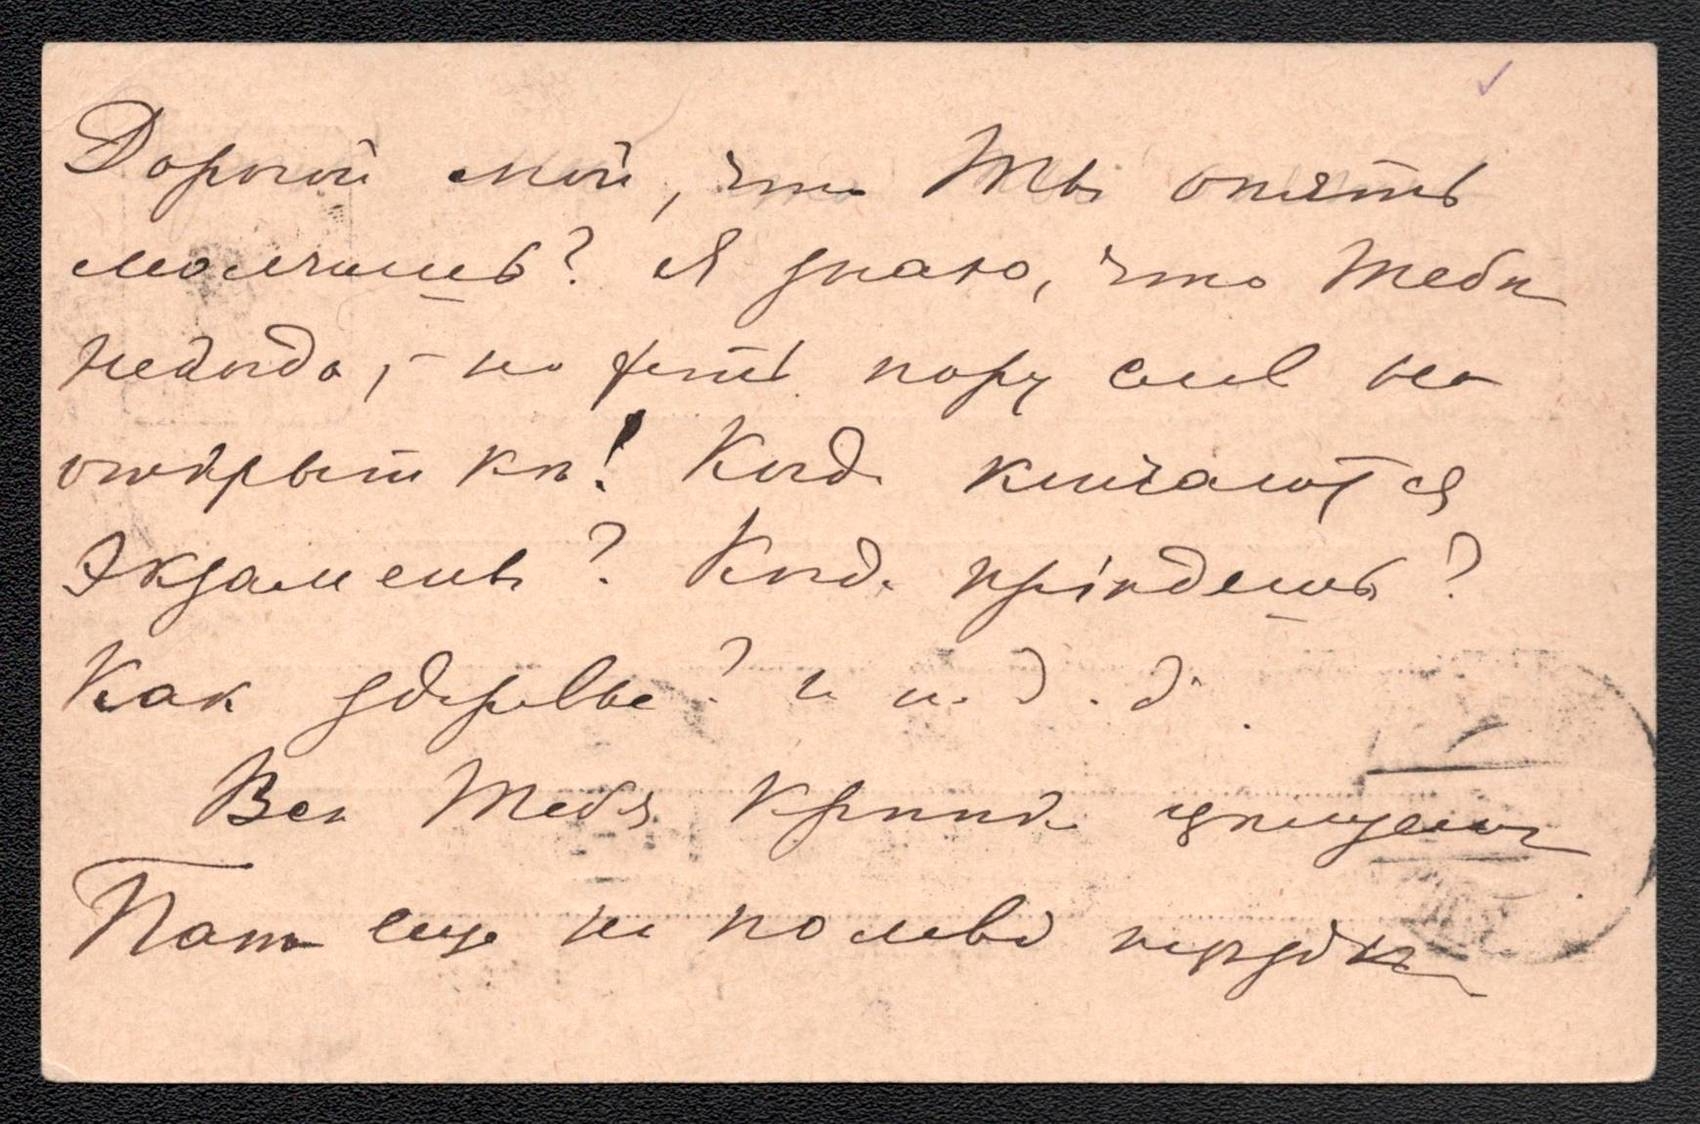 Дорогой мой, что Ты опять
молчишь? Я знаю, что Тебе
некогда, – но хоть пару слов на
открытке! Когда кончаются
экзамены? Когда пріедешь?
Как здоровье? и т. д.
Все Тебя крепко целуем
Папа еще не